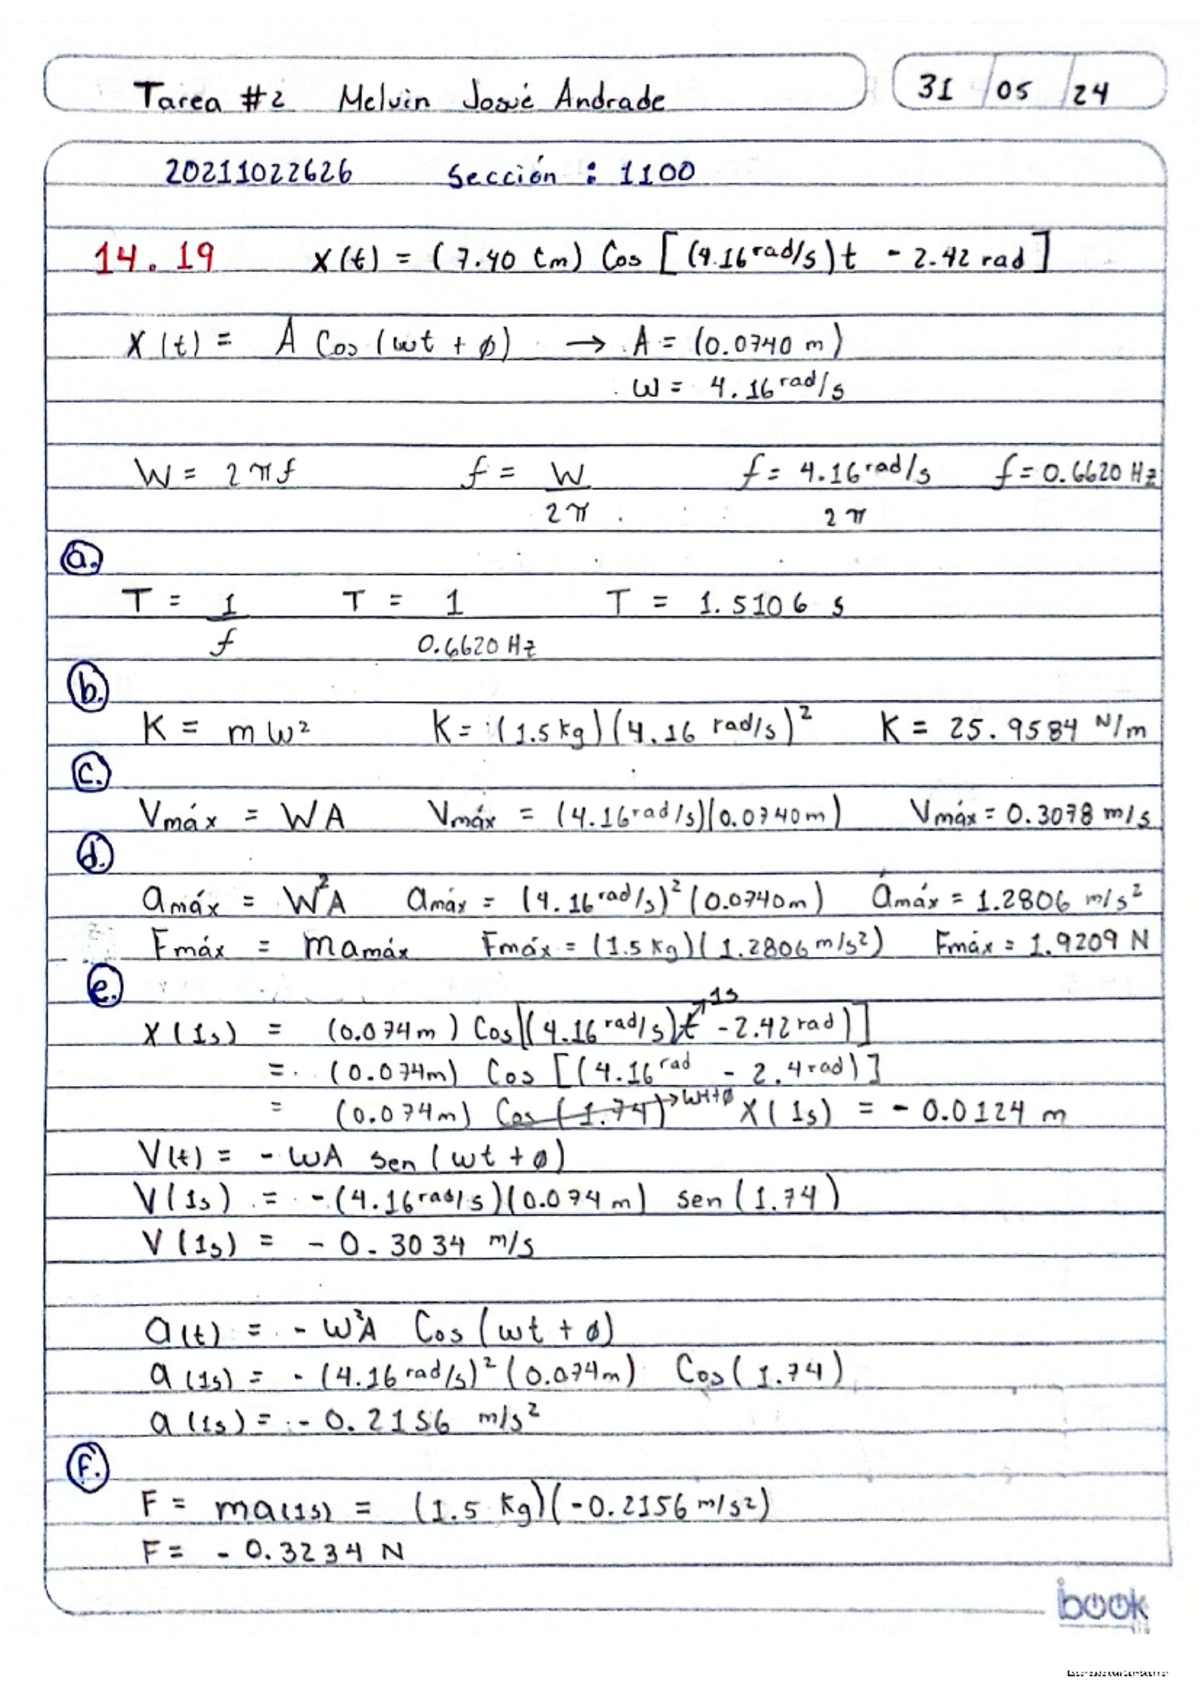 Tarea #2 Melvin Josué Andrade 31 / 05 / 24
20211022626 Sección : 1100
14.19 x(t) = (7.40 cm) Cos [(4.16 rad/s)t - 2.42 rad]
x(t) = A Cos (wt + ø) → A = (0.0740 m)
w = 4.16 rad/s
W = 2πf f = W/2π f = 4.16 rad/s / 2π f = 0.6620 Hz
a.
T = 1/f T = 1/0.6620 Hz T = 1.5106 s
b.
K = mw² K = (1.5 kg)(4.16 rad/s)² K = 25.9584 N/m
c.
Vmáx = WA Vmáx = (4.16 rad/s)(0.0740m) Vmáx = 0.3078 m/s
d.
amáx = W²A amáx = (4.16 rad/s)²(0.0740m) amáx = 1.2806 m/s²
Fmáx = mamáx Fmáx = (1.5 kg)(1.2806 m/s²) Fmáx = 1.9209 N
e.
1s
X(1s) = (0.074m) Cos[(4.16 rad/s)t - 2.42 rad)]
= (0.074m) Cos [(4.16 rad - 2.4rad)]
= (0.074m) Cos (1.74) → wt+ø X(1s) = - 0.0124 m
V(t) = - WA sen (wt + ø)
V(1s) = - (4.16 rad/s)(0.074 m) sen (1.74)
V(1s) = - 0.3034 m/s
a(t) = - W²A Cos (wt + ø)
a(1s) = - (4.16 rad/s)² (0.074m) Cos (1.74)
a(1s) = - 0.2156 m/s²
F.
F = ma(1s) = (1.5 Kg)(-0.2156 m/s²)
F = - 0.3234 N
ibook